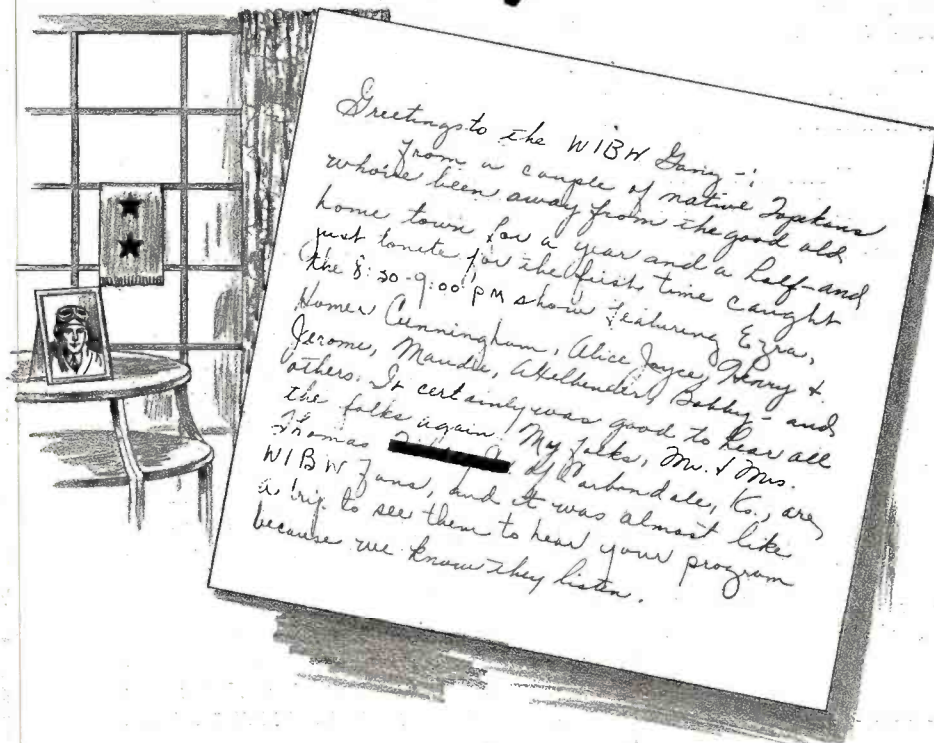 Greetings to the WIBW Gang -:
From a couple of native Topekans
who've been away from the good old
home town for a year and a half - and
just tonite for the first time caught
the 8:30-9:00 PM show featuring Ezra,
Homer Cunningham, Alice Joyce, Henry &
Jerome, Maudie, Bobby - and
others. It certainly was good to hear all
the folks again. My folks, Mr. & Mrs.
Thomas of Carbondale, Ks., are
WIBW Fans, and it was almost like
a trip to see them to hear your program
because we know they listen.